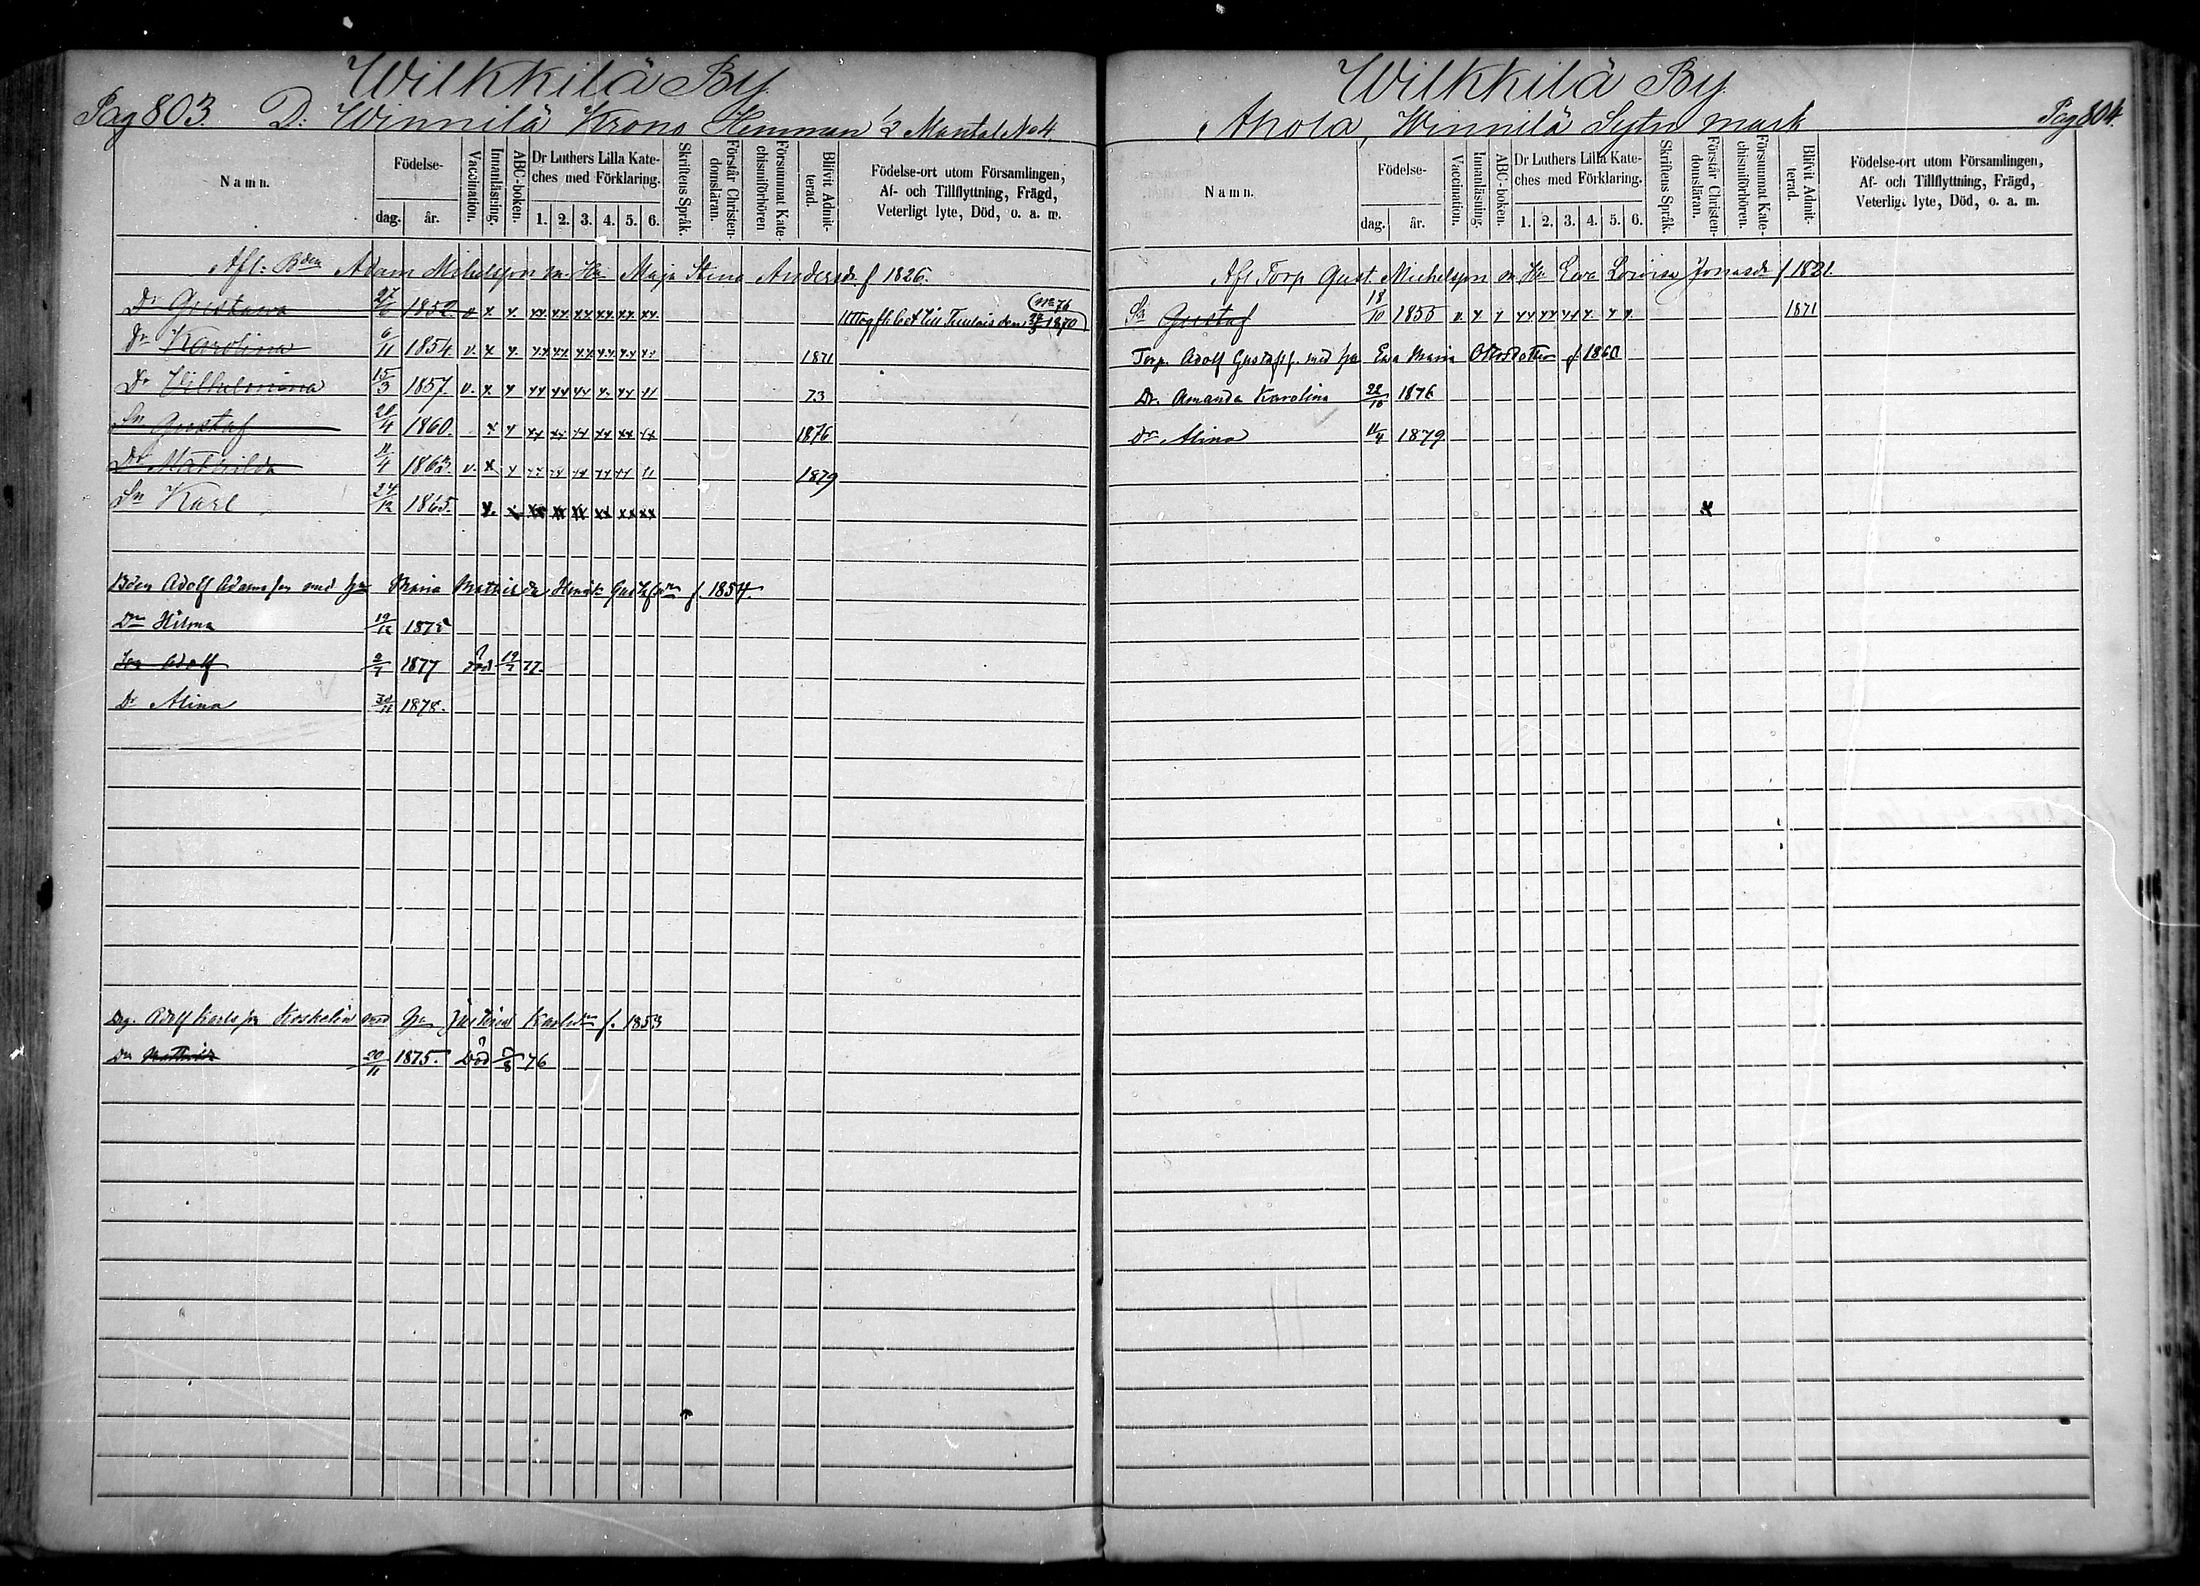 Pag 803.
Wilkkilä By
D: Winnilä Krono Hemman 1/2 Mantal No 4
Namn.
Födelse-
dag.
år.
Vaccination.
Innanläsning.
ABC-boken.
Dr Luthers Lilla Kate-
ches med Förklaring.
1. 2. 3. 4. 5. 6.
Skriftens Språk.
Förstår Christen-
domsläran.
Försummat Kate-
chismiförhören
Blifvit Admit-
terad.
Födelse-ort utom Församlingen,
Af- och Tillflyttning, Frägd,
Veterligt lyte, Död, o. a. m.
Afl: Bden Adam Michelsson Maja Stina Andersdr f 1826.
Dr Gustawa 27/6 1852. v x x xx xx xx xx xx xx till Tuulois den 1870 (No 76
Dr Karolina 6/11 1854 v. x x. xx xx xx xx xx 1871
Dr Wilhelmina 15/3 1857. v. x x xx xx xx x xx 73
Sn Gustaf 20/4 1860. x x xx xx xx xx xx xx 1876
Dr Mathilda 11/4 1863. v. x x xx xx xx xx xx 1879
Sn Karl 24/12 1865. x. x xx xx xx xx xx xx
Bden Adolf Adamsson med hu Maria Mathilda f. 1854.
Drr Hilma 19/12 1875
Son Adolf 2/7 1877 död 19/7 77.
Dr Alina 30/11 1878.
Drg. Adolf Karlsson Koskelin med Hu Justina Karlsdr f. 1853
Dr 20/11 1875. Död 5/8 76
Pag 804.
Wilkkilä By
Ahola, Winnilä Sytn mark
Namn.
Födelse-
dag.
år.
Vaccination.
Innanläsning.
ABC-boken.
Dr Luthers Lilla Kate-
ches med Förklaring.
1. 2. 3. 4. 5. 6.
Skriftens Språk.
Förstår Christen-
domsläran.
Försummat Kate-
chismiförhören.
Blifvit Admit-
terad.
Födelse-ort utom Församlingen,
Af- och Tillflyttning, Frägd,
Veterligt lyte, Död, o. a. m.
Afl. Torp Gust. Michelsson Ewa Lowisa Jonasdr f 1821
Sn Gustaf 18/10 1855 v. x x xx xx xx x x x 1871
Torp. Adolf Gustafss. med hu Ewa Maria Ottosdotter f 1860
Dr. Amanda Karolina 22/10 1876
Dr Alina 11/4 1879
x